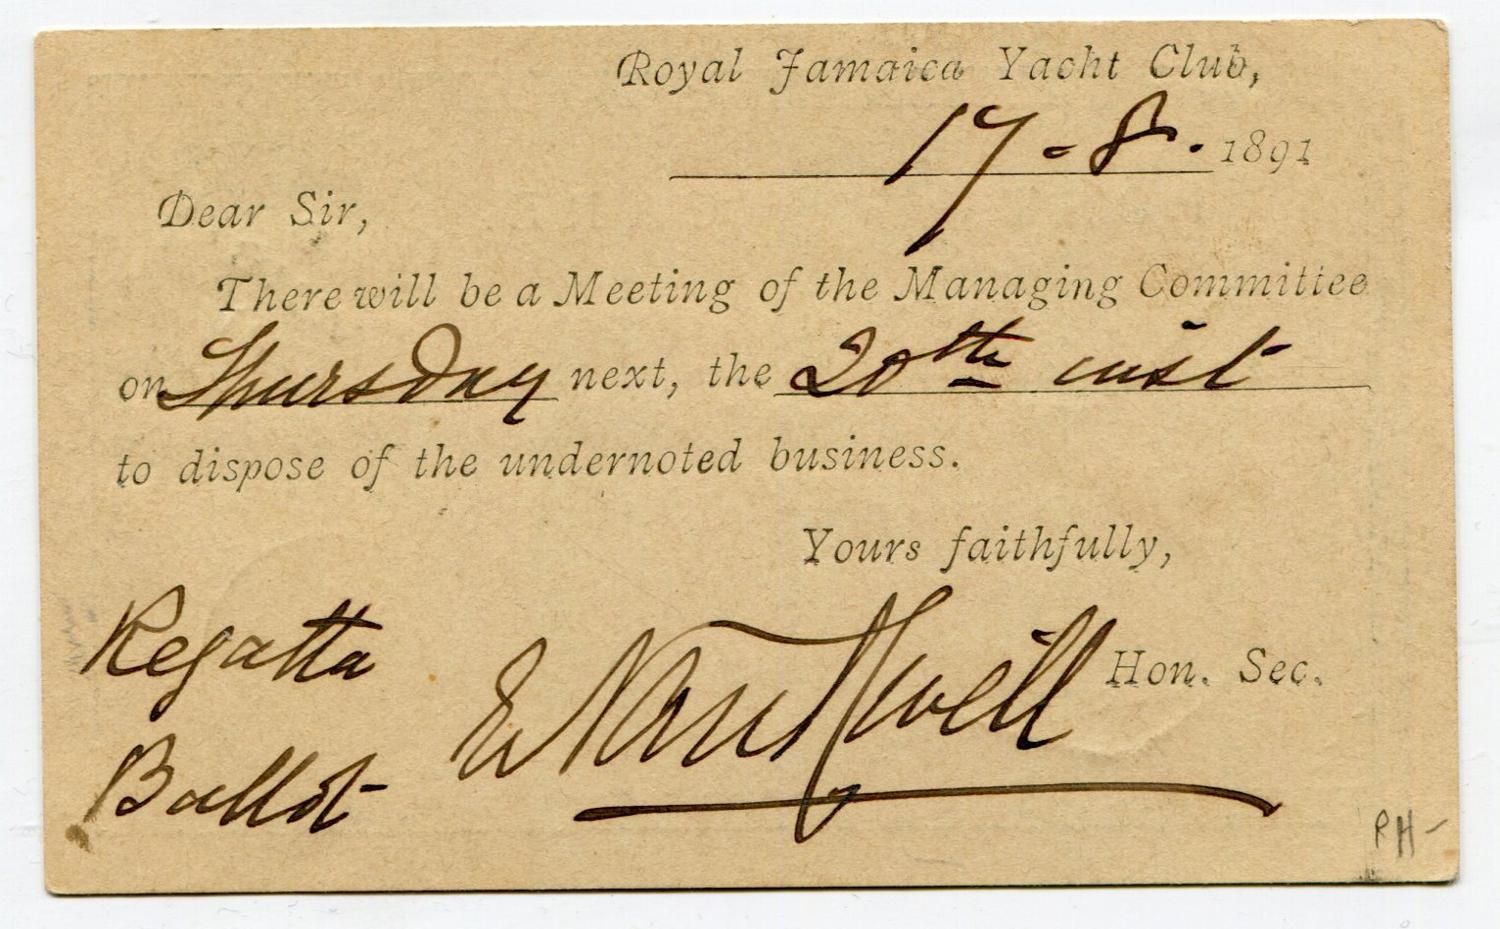 Royal Jamaica Yacht Club,
17 - 8. 1891
Dear Sir,
There will be a Meeting of the Managing Committee
on Thursday next, the 20th inst
to dispose of the undernoted business.
Yours faithfully,
Regatta
Hon. Sec.
Ballot
PH-